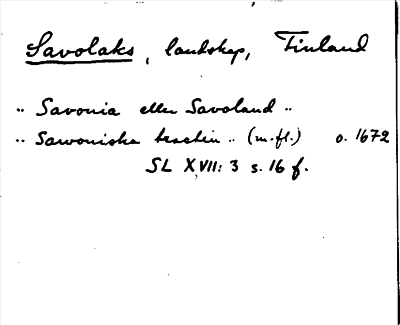 Savolaks, landskap, Finland
" Savonia eller Savoland "
" Sawoniska tractin " (m.fl.) o. 1672
SL XVII: 3 s. 16 f.